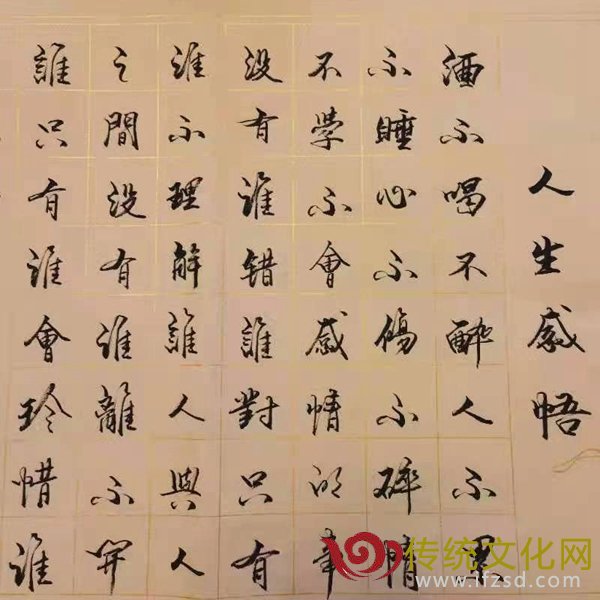 人生感悟
酒不喝不醉人不累
不睡心不傷不碎情
不學不會感情的事
沒有誰错誰對只有
誰不理解誰人與人
之間沒有誰離不開
誰只有誰會珍惜誰
传统文化网
www.lfzsd.com